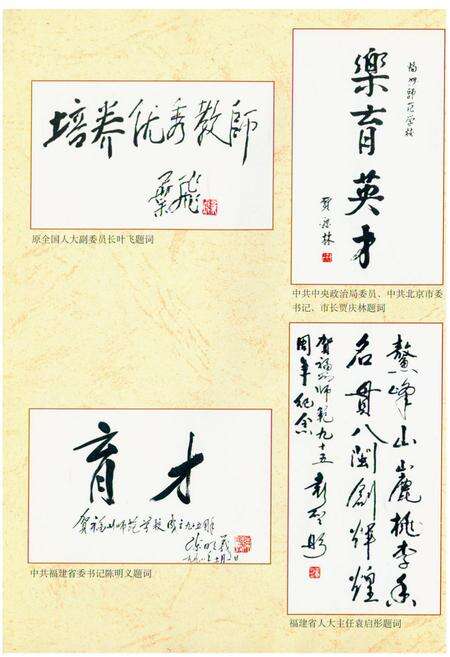 培养优秀教師
葉飛
原全国人大副委员长叶飞题词
福州師范学校
樂育英才
贾庆林
中共中央政治局委员、中共北京市委
书记、市长贾庆林题词
育才
贺福州师范学校成立九五周年
陈明义
中共福建省委书记陈明义题词
鰲峰山麓桃李香
名貫八閩創輝煌
贺福州师範九十五
周年纪念
袁启彤
福建省人大主任袁启彤题词